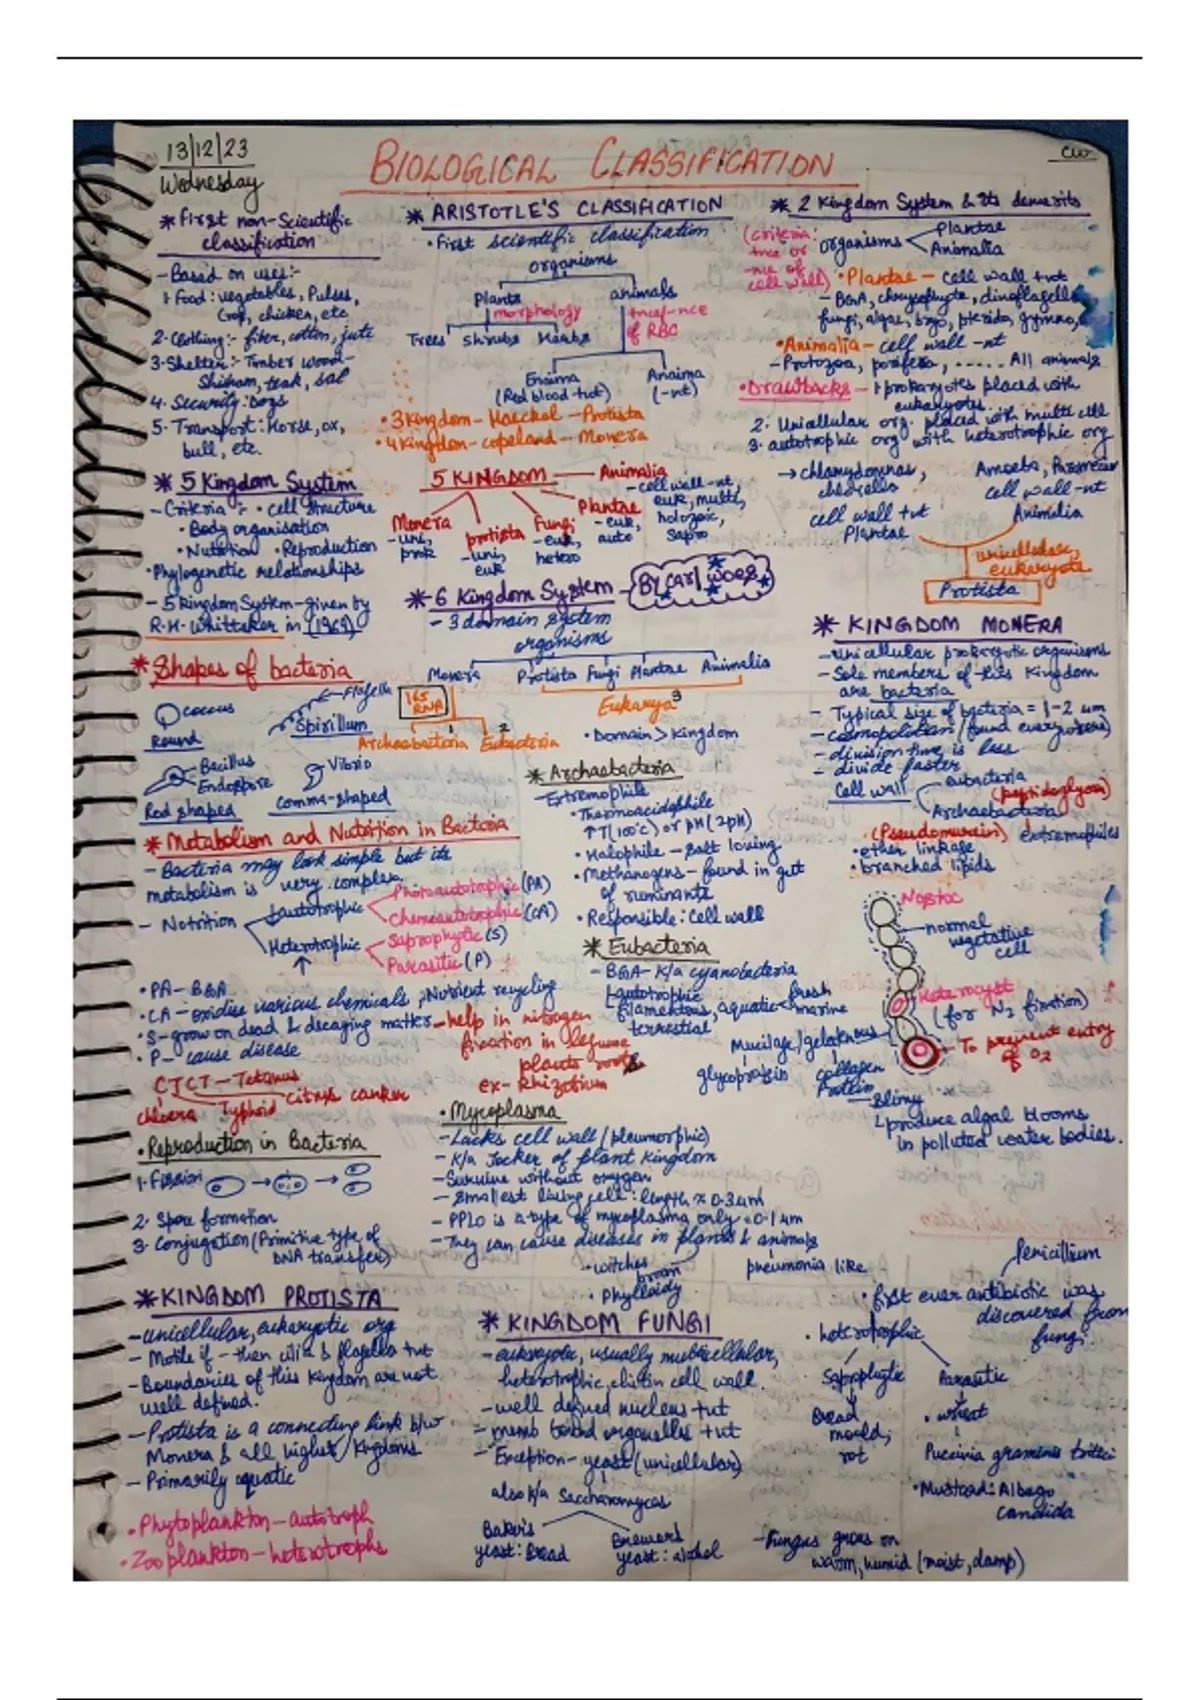 13/12/23
Wednesday
BIOLOGICAL CLASSIFICATION
CW
* First non-Scientific
classification
- Based on uses:-
1. Food: vegetables, Pulses,
Crop, chicken, etc
2. Clothing:- fiber, cotton, jute
3. Shelter:- Timber wood-
Shisham, teak, sal
4. Security: Dogs
5. Transport: Horse, ox,
bull, etc.
* ARISTOTLE'S CLASSIFICATION
• First scientific classification
organisms
Plants animals
morphology +nce/-nce
of RBC
Trees shrubs Herbs
Enaima Anaima
(Red blood +nt) (-nt)
• 3 Kingdom - Haeckel - Protista
• 4 Kingdom - copeland - Monera
* 2 Kingdom System & its demerits
(criteria:
+nce or
-nce of
cell wall)
organisms Plantae
Animalia
• Plantae - cell wall +nt
- BGA, chrysophyte, dinoflagell
fungi, algae, bryo, pterido, gymno,
• Animalia - cell wall -nt
- Protozoa, porifera, ..... All animals
• Drawbacks - 1 prokaryotes placed with
eukaryotes.
2. Unicellular org. placed with multi cell
3. autotrophic org with heterotrophic org
→ chlamydomonas, Amoeba, Paramecium
chlorella cell wall -nt
cell wall +nt Animalia
Plantae
unicellular,
eukaryote
Protista
* 5 Kingdom System
- Criteria :- • cell structure
• Body organisation
• Nutrition • Reproduction
• Phylogenetic relationships
- 5 Kingdom System - given by
R.H. Whittaker in (1969)
5 KINGDOM
Animalia
- cell wall -nt,
euk, multi,
holozoic,
sapro
Plantae
- euk,
auto
Fungi
- euk,
hetero
protista
- uni,
euk
Monera
- uni,
prok
* 6 Kingdom System - By Carl Woese
- 3 domain system
organisms
Monera Protista Fungi Plantae Animalia
16S
RNA
Eukarya 3
1 2
Archaebacteria Eubacteria
• Domain > Kingdom
* Shapes of bacteria
coccus
Round
Flagella
Spirillum
Bacillus
Endospore
Rod shaped
Vibrio
comma-shaped
* KINGDOM MONERA
- unicellular prokaryotic organisms
- Sole members of this Kingdom
are bacteria
- Typical size of bacteria = 1-2 um
- cosmopolitan (found everywhere)
- division time is less
- divide faster
Cell wall eubacteria
(peptidoglycan)
Archaebacteria
(Pseudomurein) extremophiles
• ether linkage
• branched lipids
* Archaebacteria
- Extremophile
• Thermoacidophile
↑T(100°c) or pH (2pH)
• Halophile - salt loving
• Methanogens - found in gut
of ruminants
• Responsible: Cell wall
* Metabolism and Nutrition in Bacteria
- Bacteria may look simple but its
metabolism is very complex.
- Nutrition autotrophic Photoautotrophic (PA)
Chemoautotrophic (CA)
Heterotrophic Saprophytic (S)
Parasitic (P)
• PA - BGA
• CA - oxidise various chemicals, Nutrient recycling
• S - grow on dead & decaying matter
• P - cause disease
- help in nitrogen
fixation in legume
plants roots
ex - Rhizobium
CTCT - Tetanus
cholera Typhoid citrus canker
* Eubacteria
- BGA - K/a cyanobacteria
autotrophic
filamentous, aquatic fresh
marine
terrestrial
Mucilage/gelatenous
glycoprotein collagen
Protein
Slimy
produce algal blooms
in polluted water bodies.
Nostoc
normal
vegetative
cell
Heterocyst
(for N2 fixation)
To prevent entry
of O2
• Reproduction in Bacteria
1. Fission
2. Spore formation
3. Conjugation (Primitive type of
DNA transfer)
• Mycoplasma
- Lacks cell wall (pleumorphic)
- K/a Jocker of plant kingdom
- Survive without oxygen
- Smallest living cell: length ≈ 0.3um
- PPLO is a type of mycoplasma only ≈ 0.1um
- They can cause diseases in plants & animals
- witches
broom
• Phylloidy
pneumonia like
* KINGDOM PROTISTA
- unicellular, eukaryotic org
- Motile if - then cilia & flagella +nt
- Boundaries of this kingdom are not
well defined.
- Protista is a connecting link b/w
Monera & all higher Kingdoms
- Primarily aquatic
• Phytoplankton - autotroph
• Zooplankton - heterotrophs
* KINGDOM FUNGI
- eukaryotic, usually multicellular,
heterotrophic, chitin cell wall.
- well defined nucleus +nt
- memb bound organelles +nt
- Exception - yeast (unicellular)
also k/a Saccharomyces
Baker's
yeast: Bread
Brewer's
yeast: alcohol
Penicillium
• first ever antibiotic was
discovered from
fungi
• heterotrophic
Saprophytic Parasitic
Bread
mould,
rot
• wheat
Puccinia graminis tritici
• Mustard: Albugo
candida
- Fungus grows on
warm, humid (moist, damp)